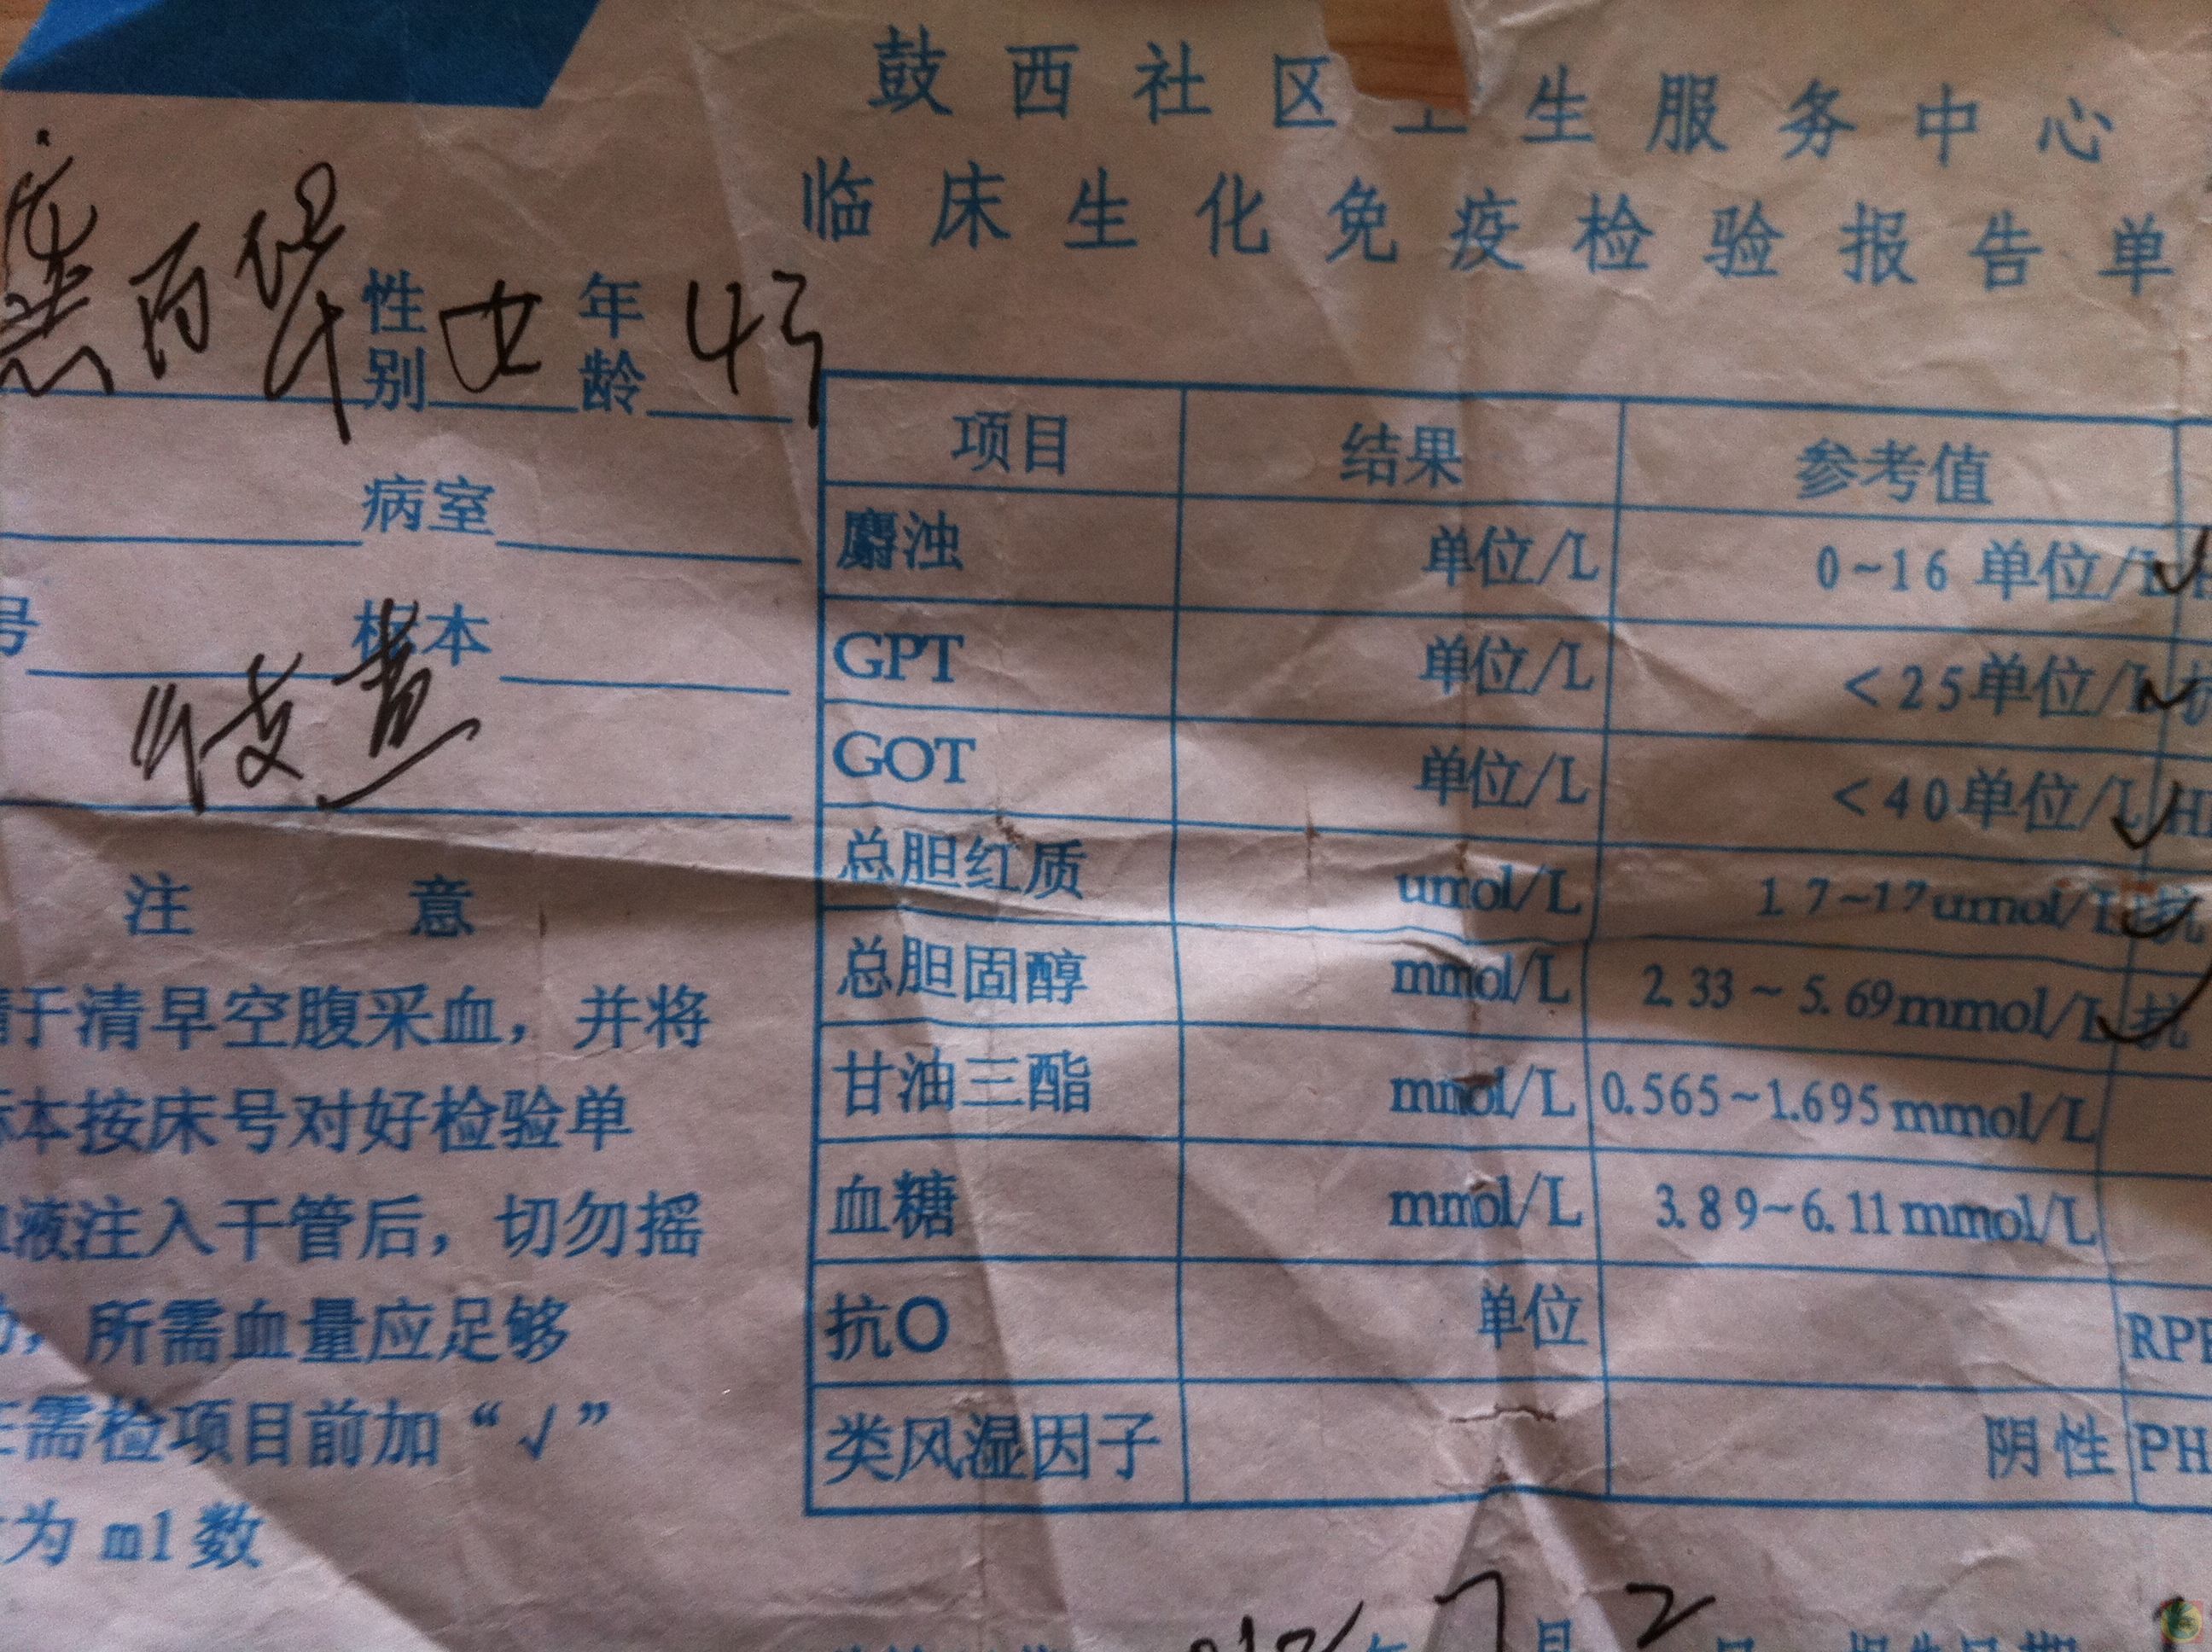 鼓西社区卫生服务中心
临床生化免疫检验报告单
性别 女 年龄 43
病室
号 标本
注 意
请于清早空腹采血，并将
标本按床号对好检验单
血液注入干管后，切勿摇
动，所需血量应足够
在需检项目前加“√”
为ml数
项目 结果 参考值
麝浊 单位/L 0~16 单位/L
GPT 单位/L <25单位/L
GOT 单位/L <40单位/L
总胆红质 umol/L 1.7~17umol/L 抗
总胆固醇 mmol/L 2.33~5.69mmol/L 抗
甘油三酯 mmol/L 0.565~1.695mmol/L
血糖 mmol/L 3.89~6.11mmol/L
抗O 单位
类风湿因子 阴性 PH
年 7 月 2